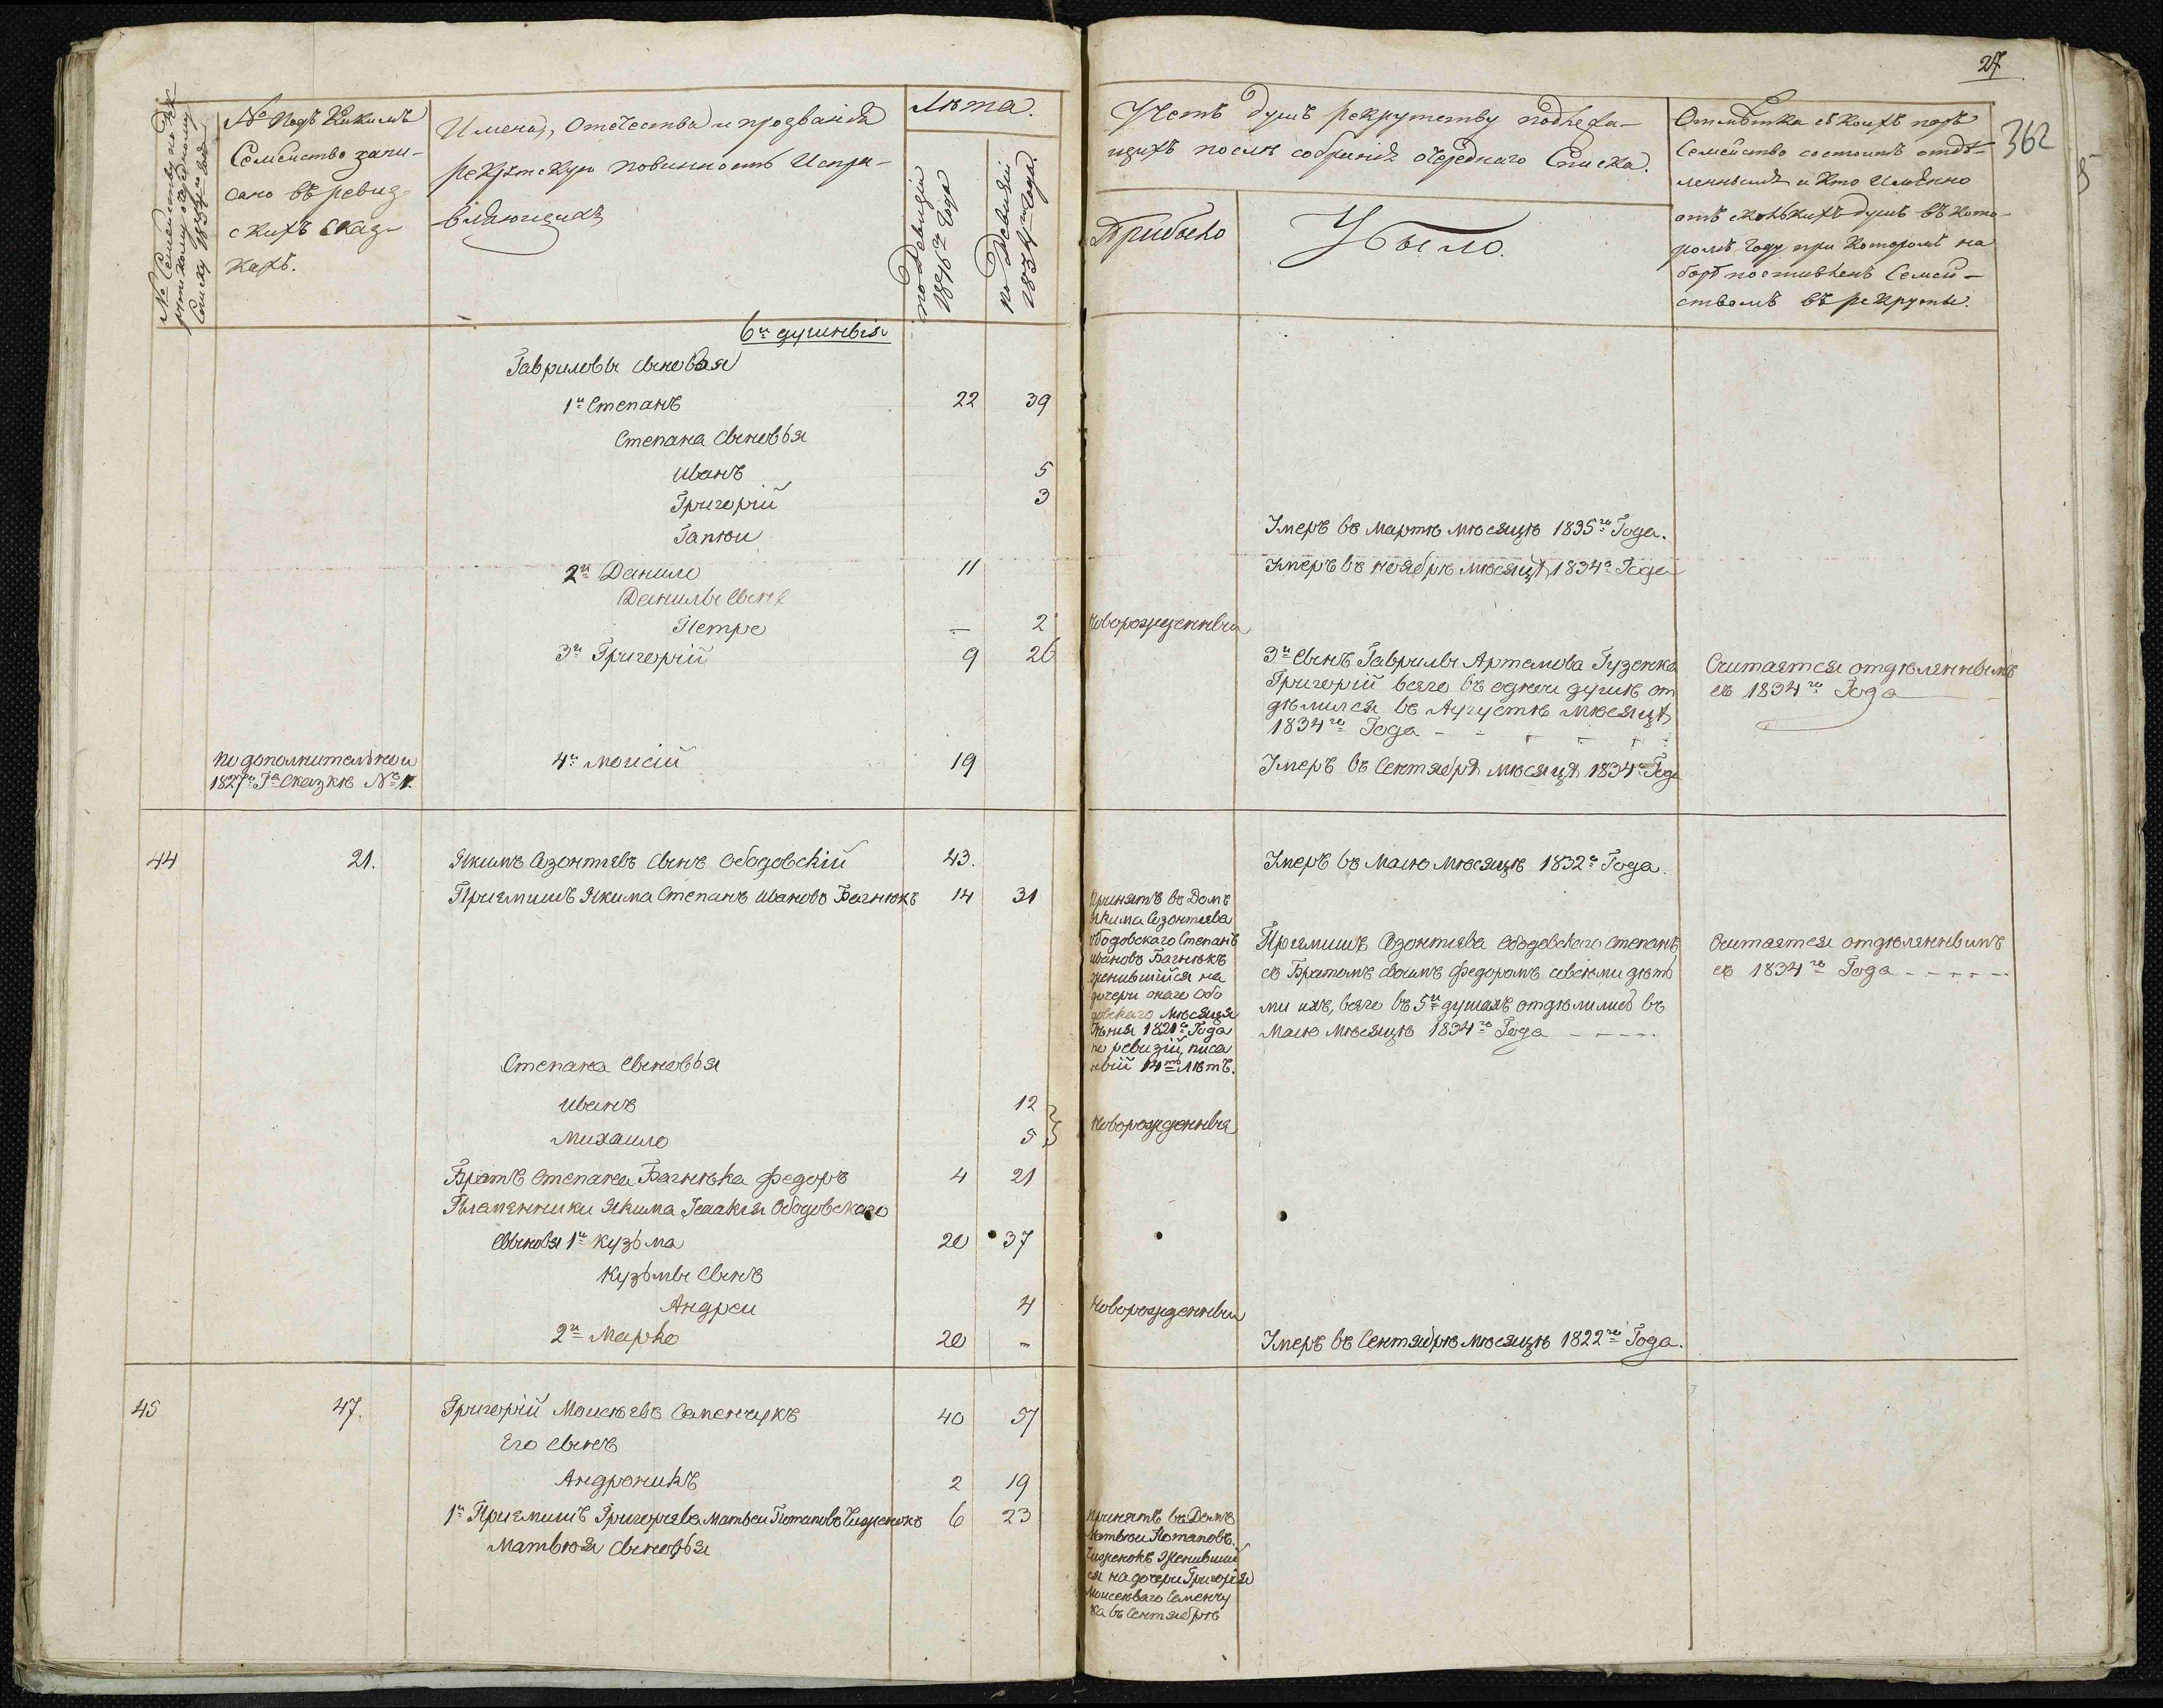 27
362
№ Семейству по
Списку
№ Подъ Какимъ
Семейство запи-
сано въ ревиз-
скихъ Сказ-
кахъ.
Имена, Отечества и прозванія
рекрутскую повинность Испра-
вляющихъ
Лѣта.
по ревизіи
1816го Года
по Ревизіи
1834го Года.
Счетъ душъ рекрутству подлежа-
щихъ послѣ собранія очереднаго Списка.
Прибыло
Убыло.
Отмѣтка съ коихъ поръ
Семейство состоитъ отдѣ-
леннымъ и кто Именно
отъ сколькихъ душъ въ кото-
ромъ Году при Которомъ на
борѣ поставленъ Семей-
ствомъ въ рекруты.
6и душныя
Гавриловы Сыновья
1й Степанъ 22 39
Степана Сыновья
Иванъ 5
Григорій 3
Гапѣи Умеръ въ Мартѣ мѣсяцѣ 1835го Года.
2й Данило 11 Умеръ въ ноябрѣ мѣсяцѣ 1834го Года
Данилы Сынъ
Петро — 2 Новорожденный
3й Григорій 9 26 3й Сынъ Гаврилы Артемова Гузенка Считается отдѣленнымъ
Григорій всего въ одной душѣ от съ 1834го Года
дѣлился въ Августѣ Мѣсяцѣ
1834го Года
По дополнительной 4й Моисій 19 Умеръ въ Сентябрѣ мѣсяцѣ 1834го Года
1827го Гда Сказкѣ №
44 21. Якимъ Созонтіевъ Сынъ Ободовскій 43. Умеръ въ Маію Мѣсяцѣ 1832го Года.
Приемишъ Якима Степанъ Ивановъ Багнюкъ 14 31
Принятъ въ Домъ
Якима Созонтіева
Ободовскаго Степанъ
Ивановъ Багнюкъ
женившійся на
дочери онаго Обо
довскаго Мѣсяця
Іюня 1821го Года
по ревизіи писа
ный 14ть Лѣтъ.
Приемишъ Созонтіева Ободовскаго Степанъ
съ Братомъ своимъ Федоромъ совсѣми дѣть
ми ихъ, всего въ 5и душахъ отдѣлились въ
Маію мѣсяцѣ 1834го Года
Считается отдѣленнымъ
съ 1834го Года
Степана Сыновья
Иванъ 12
Новорожденныя
Михаило 5
Братъ Степана Багнюка Федоръ 4 21
Племенники Якима Ісаакія Ободовскаго
Сыновя 1й Кузьма 20 37
Кузьмы Сынъ
Андреи 4 Новорожденный
2й Марко 20 - Умеръ въ Сентябрѣ мѣсяцѣ 1822го Года.
45 47. Григорій Моисѣевъ Семенчукъ 40 57
Его Сынъ
Андроникъ 2 19
1й Приемишъ Григорьева Матвеи Потаповъ Чиженокъ 6 23
Матвѣя Сыновья
Принятъ въ Домъ
Матвѣи Потаповъ
Чиженокъ Женивший
ся на дочери Григорія
Моисеѣваго Семенчу
ка въ Сентябрѣ